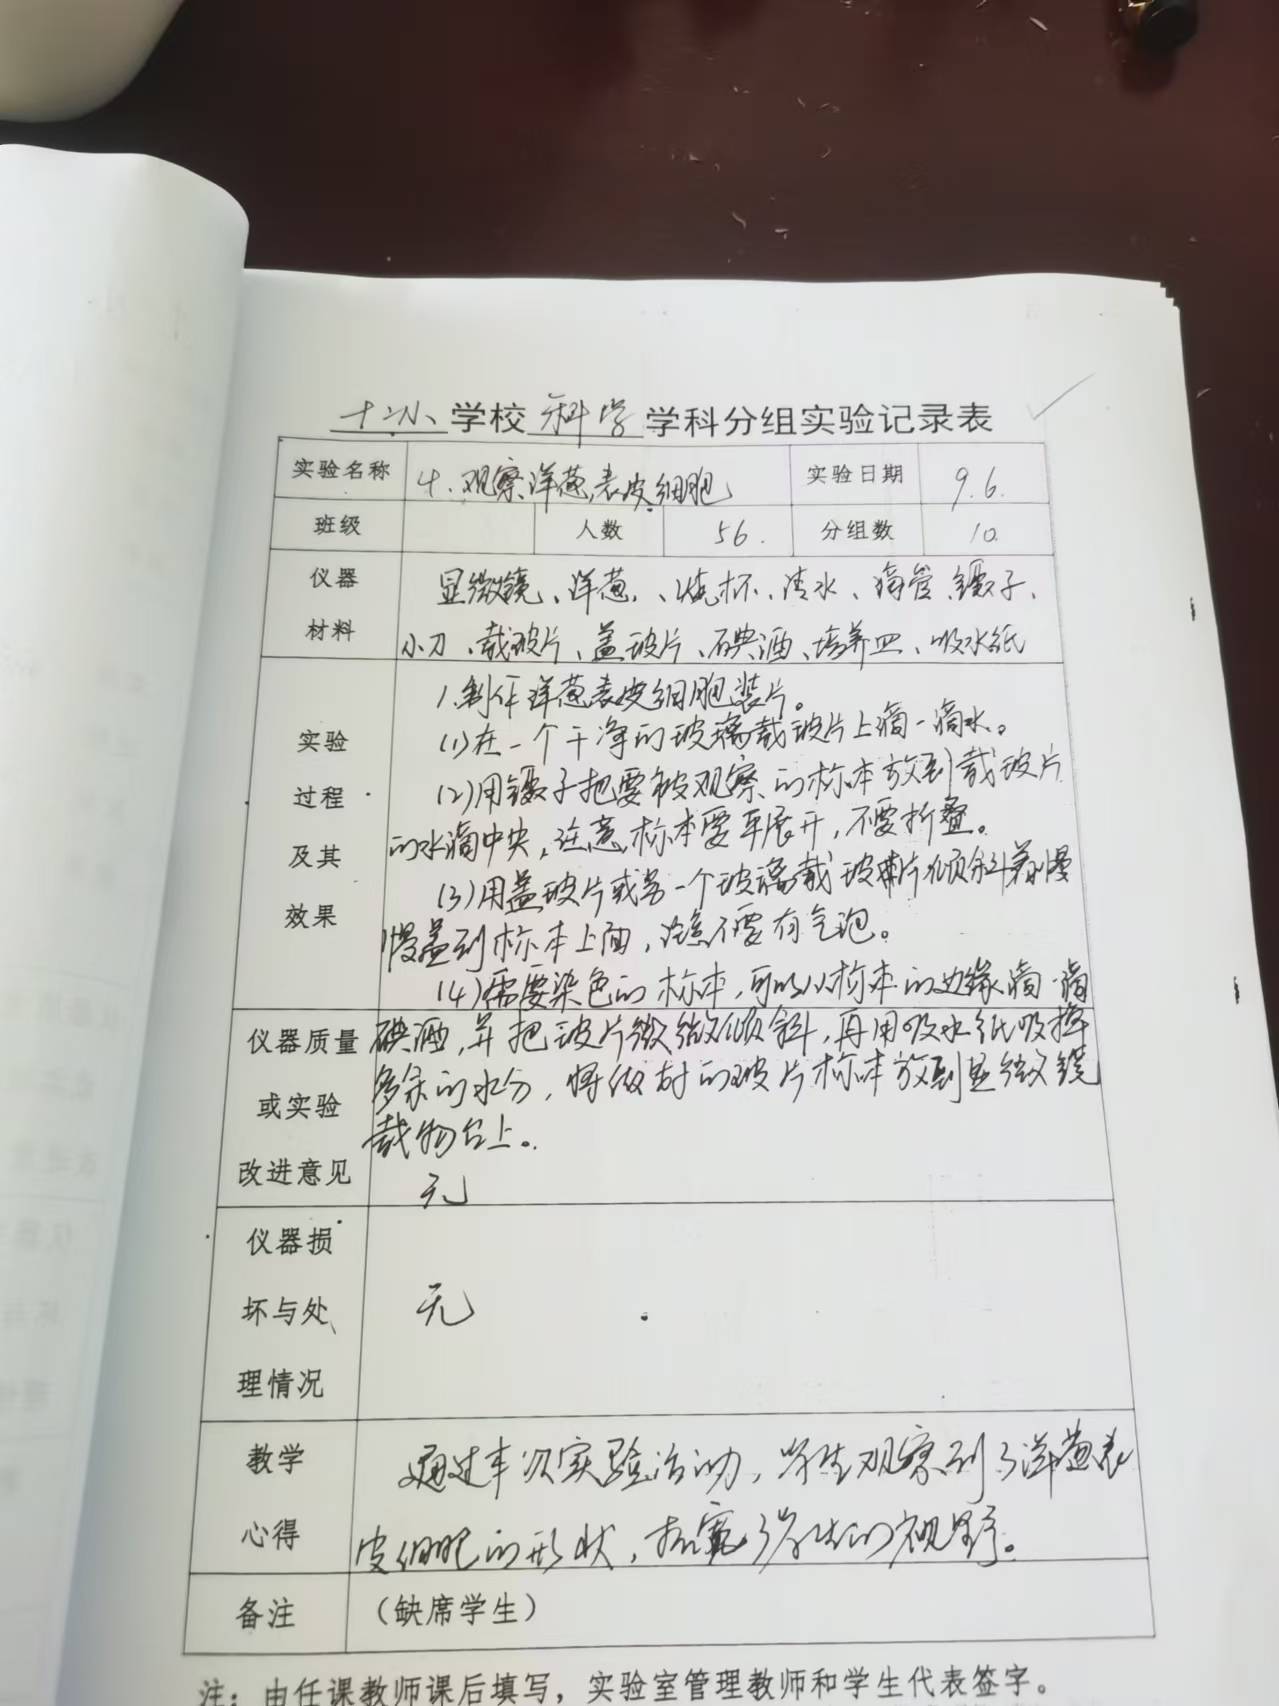 十二小 学校 科学 学科分组实验记录表
实验名称 4.观察洋葱表皮细胞 实验日期 9.6.
班级 人数 56. 分组数 10
仪器 显微镜、洋葱、、烧杯、清水、滴管、镊子、
材料 小刀、载玻片、盖玻片、碘酒、培养皿、吸水纸
1.制作洋葱表皮细胞装片。
实验 (1)在一个干净的玻璃载玻片上滴一滴水。
过程 (2)用镊子把要被观察的标本放到载玻片
及其 的水滴中央,注意标本要平展开,不要折叠。
(3)用盖玻片或另一个玻璃载玻片倾斜着慢
效果 慢盖到标本上面,注意不要有气泡。
(4)需要染色的标本,可以从标本的边缘滴一滴
仪器质量 碘酒,并把玻片微微倾斜,再用吸水纸吸掉
或实验 多余的水分,将做好的玻片标本放到显微镜
载物台上。
改进意见 无
仪器损
坏与处 无
理情况
教学 通过本次实验活动,学生观察到了洋葱表
心得 皮细胞的形状,拓宽了学生的视野。
备注 (缺席学生)
注:由任课教师课后填写,实验室管理教师和学生代表签字。